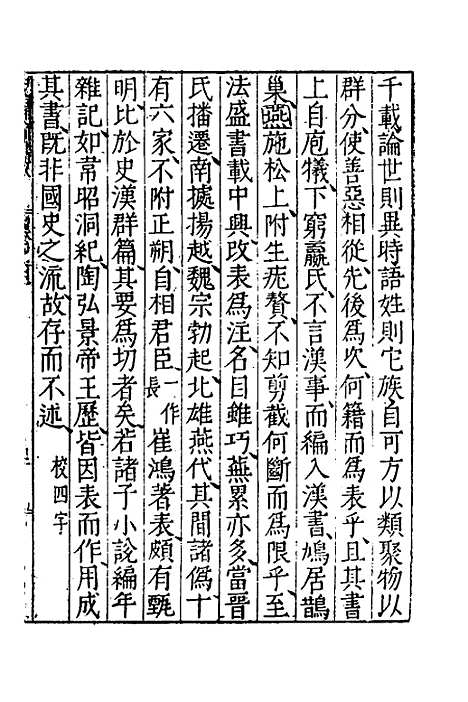 千載論世則異時語姓則它族自可方以類聚物以
群分使善惡相從先後為次何籍而為表乎且其書
上自庖犠下窮嬴氏不言漢事而編入漢書鳩居鵲
巢蔦施松上附生疣贅不知剪截何斷而為限乎至
法盛書載中興改表為注名目雖巧蕪累亦多當晉
氏播遷南據揚越魏宗勃起北雄燕代其間諸偽十
有六家不附正朔自相君臣一作長崔鴻著表頗有甄
明比於史漢群篇其要為切者矣若諸子小說編年
雜記如韋昭洞紀陶弘景帝王歷皆因表而作用成
其書既非國史之流故存而不述 校四字